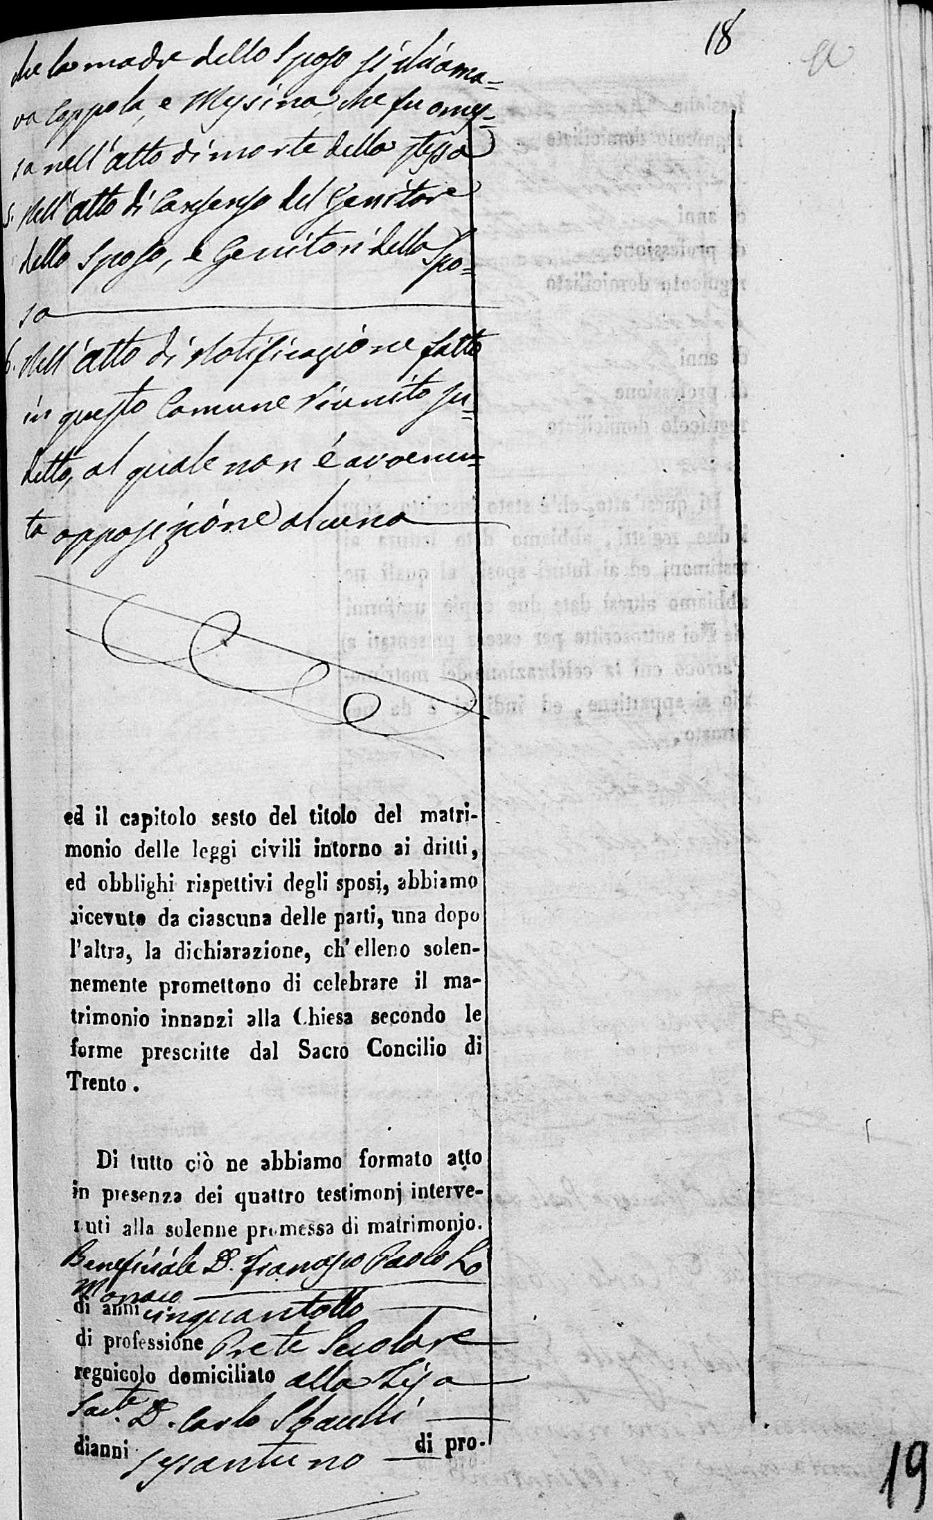 18
che la madre dello Sposo si chiama=
va Coppola, e Messina, che fu omes=
sa nell'atto di morte della stessa
5. Nell'atto di Consenso del Genitore
dello Sposo, e Genitori della Spo=
sa
6. Nell'atto di Notificazione fatto
in questo Comune Riunito su=
detto, al quale non é avvenu=
ta opposizione alcuna
ed il capitolo sesto del titolo del matri-
monio delle leggi civili intorno ai dritti,
ed obblighi rispettivi degli sposi, abbiamo
ricevuto da ciascuna delle parti, una dopo
l'altra, la dichiarazione, ch'elleno solen-
nemente promettono di celebrare il ma-
trimonio innanzi alla Chiesa secondo le
forme prescritte dal Sacro Concilio di
Trento.
Di tutto ciò ne abbiamo formato atto
in presenza dei quattro testimonj interve-
nuti alla solenne promessa di matrimonio.
Beneficiale D. Francesco Paolo Lo
Monaco
di anni cinquantotto
di professione Prete Secolare
regnicolo domiciliato alla
Sacte. D. Carlo
dianni sessantuno di pro-
19